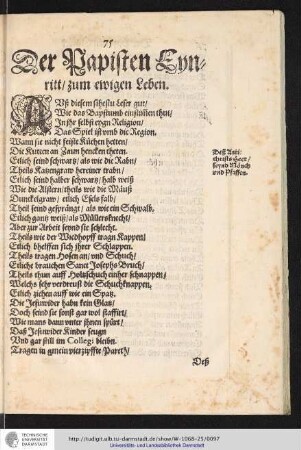 75
Der Papisten Eyn-
ritt / zum ewigen Leben.
Auß diesem sihestu Leser gut /
Wie das Bapstumb einfallen thut /
In jhr selbst eygn Religion /
Das Spiel ist vmb die Region.
Wann sie nacht feißte Küchen hetten /
Die Kutten an Zaun hencken theten.
Etlich seind schwartz / als wie die Rabn /
Theils Katzengraw hereiner trabn /
Etlich seind halber schwartz / halb weiß
Wie die Alstern / theils wie die Mäuß
Dunckelgraw / etlich Esels falb /
Theil seind gesprängt / als wie ein Schwalb,
Etlich gantz weiß / als Müllersknecht /
Aber zur Arbeit seynd sie schlecht.
Theils wie der Wiedhopff tragn Kappen /
Etlich bhelffen sich jhrer Schlappen.
Theils tragen Hosen an / vnd Schuch /
Etliche brauchen Sanct Josephs Bruch /
Theils thun auff Holtzschuch einher schnappen /
Welchs sehr verdreust die Schuchknappen,
Etlich ziehen auff wie ein Spatz.
Die Jesuwider habn kein Glatz /
Doch seind sie sonst gar wol staffirt /
Wie mans dann vnter jhnen spürt /
Daß Jesuwider Kinder seugn
Vnd gar still im Collegi bleibn.
Tragen in gmein vierzipffte Pareth /
Deß
Deß Anti-
christs Heer /
seynd Münch
vnd Pfaffen.
TECHNISCHE
UNIVERSITÄT
DARMSTADT
http://tudigit.ulb.tu-darmstadt.de/show/W-1968-25/0097
Universitäts- und Landesbibliothek Darmstadt